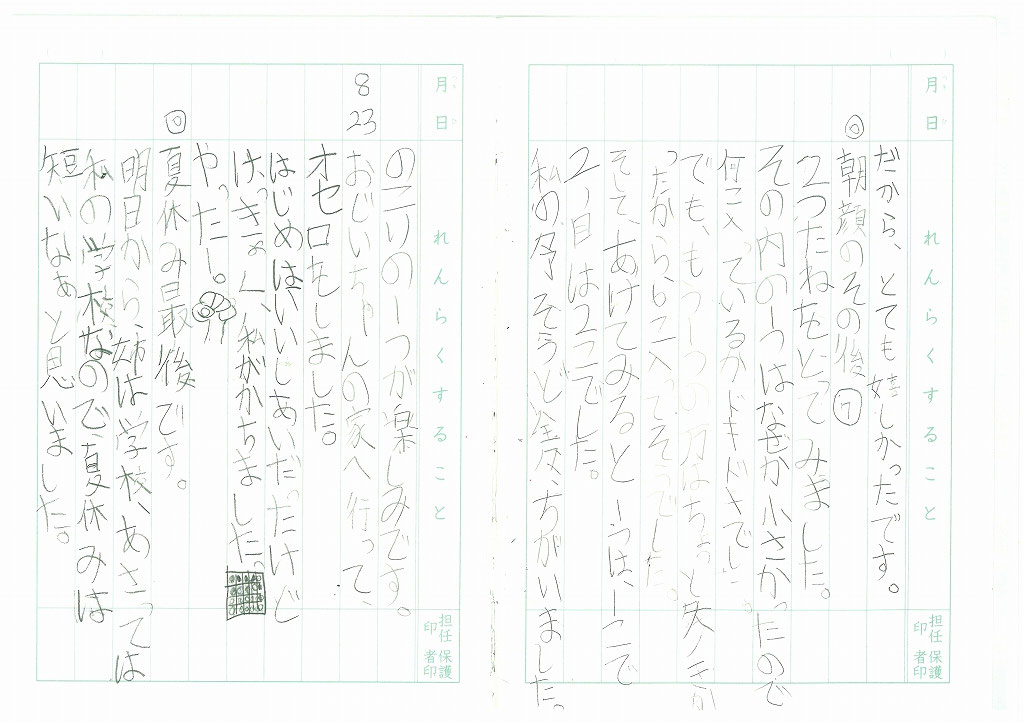 月日
れんらくすること
担任印
保護者印
だから、とても嬉しかったです。
◎
朝顔のその後⑦
2つたねをとってみました。
その内の一つはなぜか小さかったので
何こ入っているかドキドキでし
でも、もう一つの方はちょっと大きか
ったから、6こ入ってそうでした。
そして、あけてみると一うは、一こで
2つ目は2こでした。
私の予そうと全ぶちがいました。
月日
れんらくすること
担任印
保護者印
のこりの一つが楽しみです。
8 23
おじいちゃんの家へ行って、
オセロをしました。
はじめはいいしあいだっだけど
けっきょく、私がかちました。
やったー。
◎
夏休み最後です。
明日から、姉は学校、あさっては
私の学校なので、夏休みは
短いなぁと思いました。